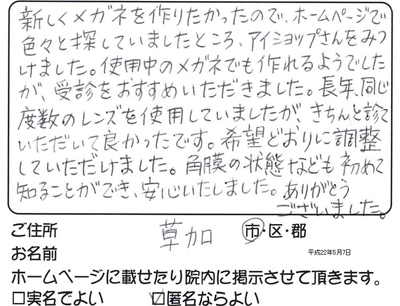 新しくメガネを作りたかったので、ホームページで
色々と探していましたところ、アイショップさんをみつ
けました。使用中のメガネでも作れるようでした
が、受診をおすすめいただきました。長年、同じ
度数のレンズを使用していましたが、きちんと診て
いただいて良かったです。希望どおりに調整
していただけました。角膜の状態なども初めて
知ることができ、安心いたしました。ありがとう
ございました。
ご住所 草加 市・区・郡
お名前 平成22年5月7日
ホームページに載せたり院内に掲示させて頂きます。
□実名でよい ☑匿名ならよい